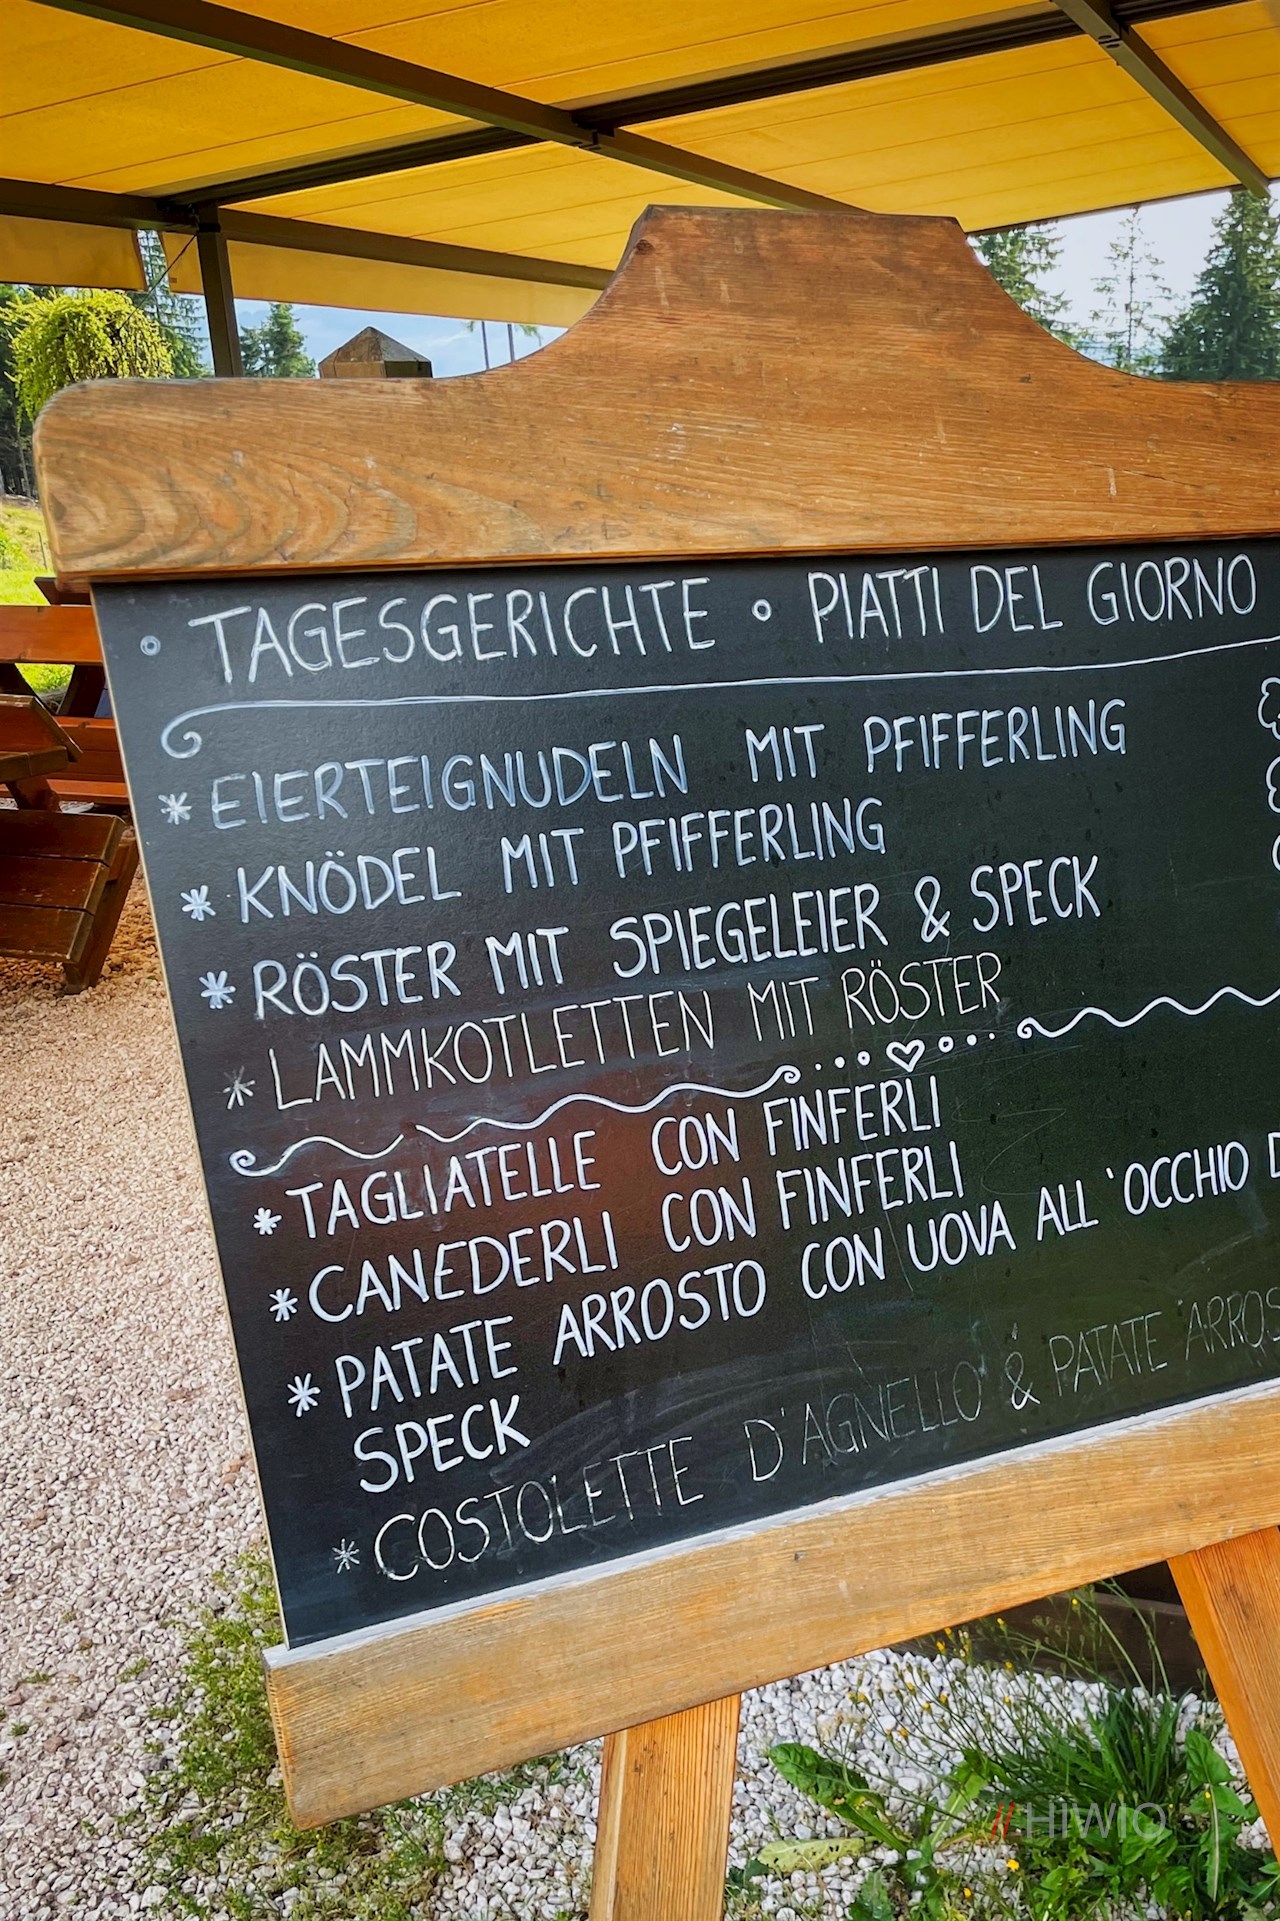 TAGESGERICHTE • PIATTI DEL GIORNO
* EIERTEIGNUDELN MIT PFIFFERLING
* KNÖDEL MIT PFIFFERLING
* RÖSTER MIT SPIEGELEIER & SPECK
* LAMMKOTLETTEN MIT RÖSTER
* TAGLIATELLE CON FINFERLI
* CANEDERLI CON FINFERLI
* PATATE ARROSTO CON UOVA ALL'OCCHIO
SPECK
* COSTOLETTE D'AGNELLO & PATATE
//HIWIO